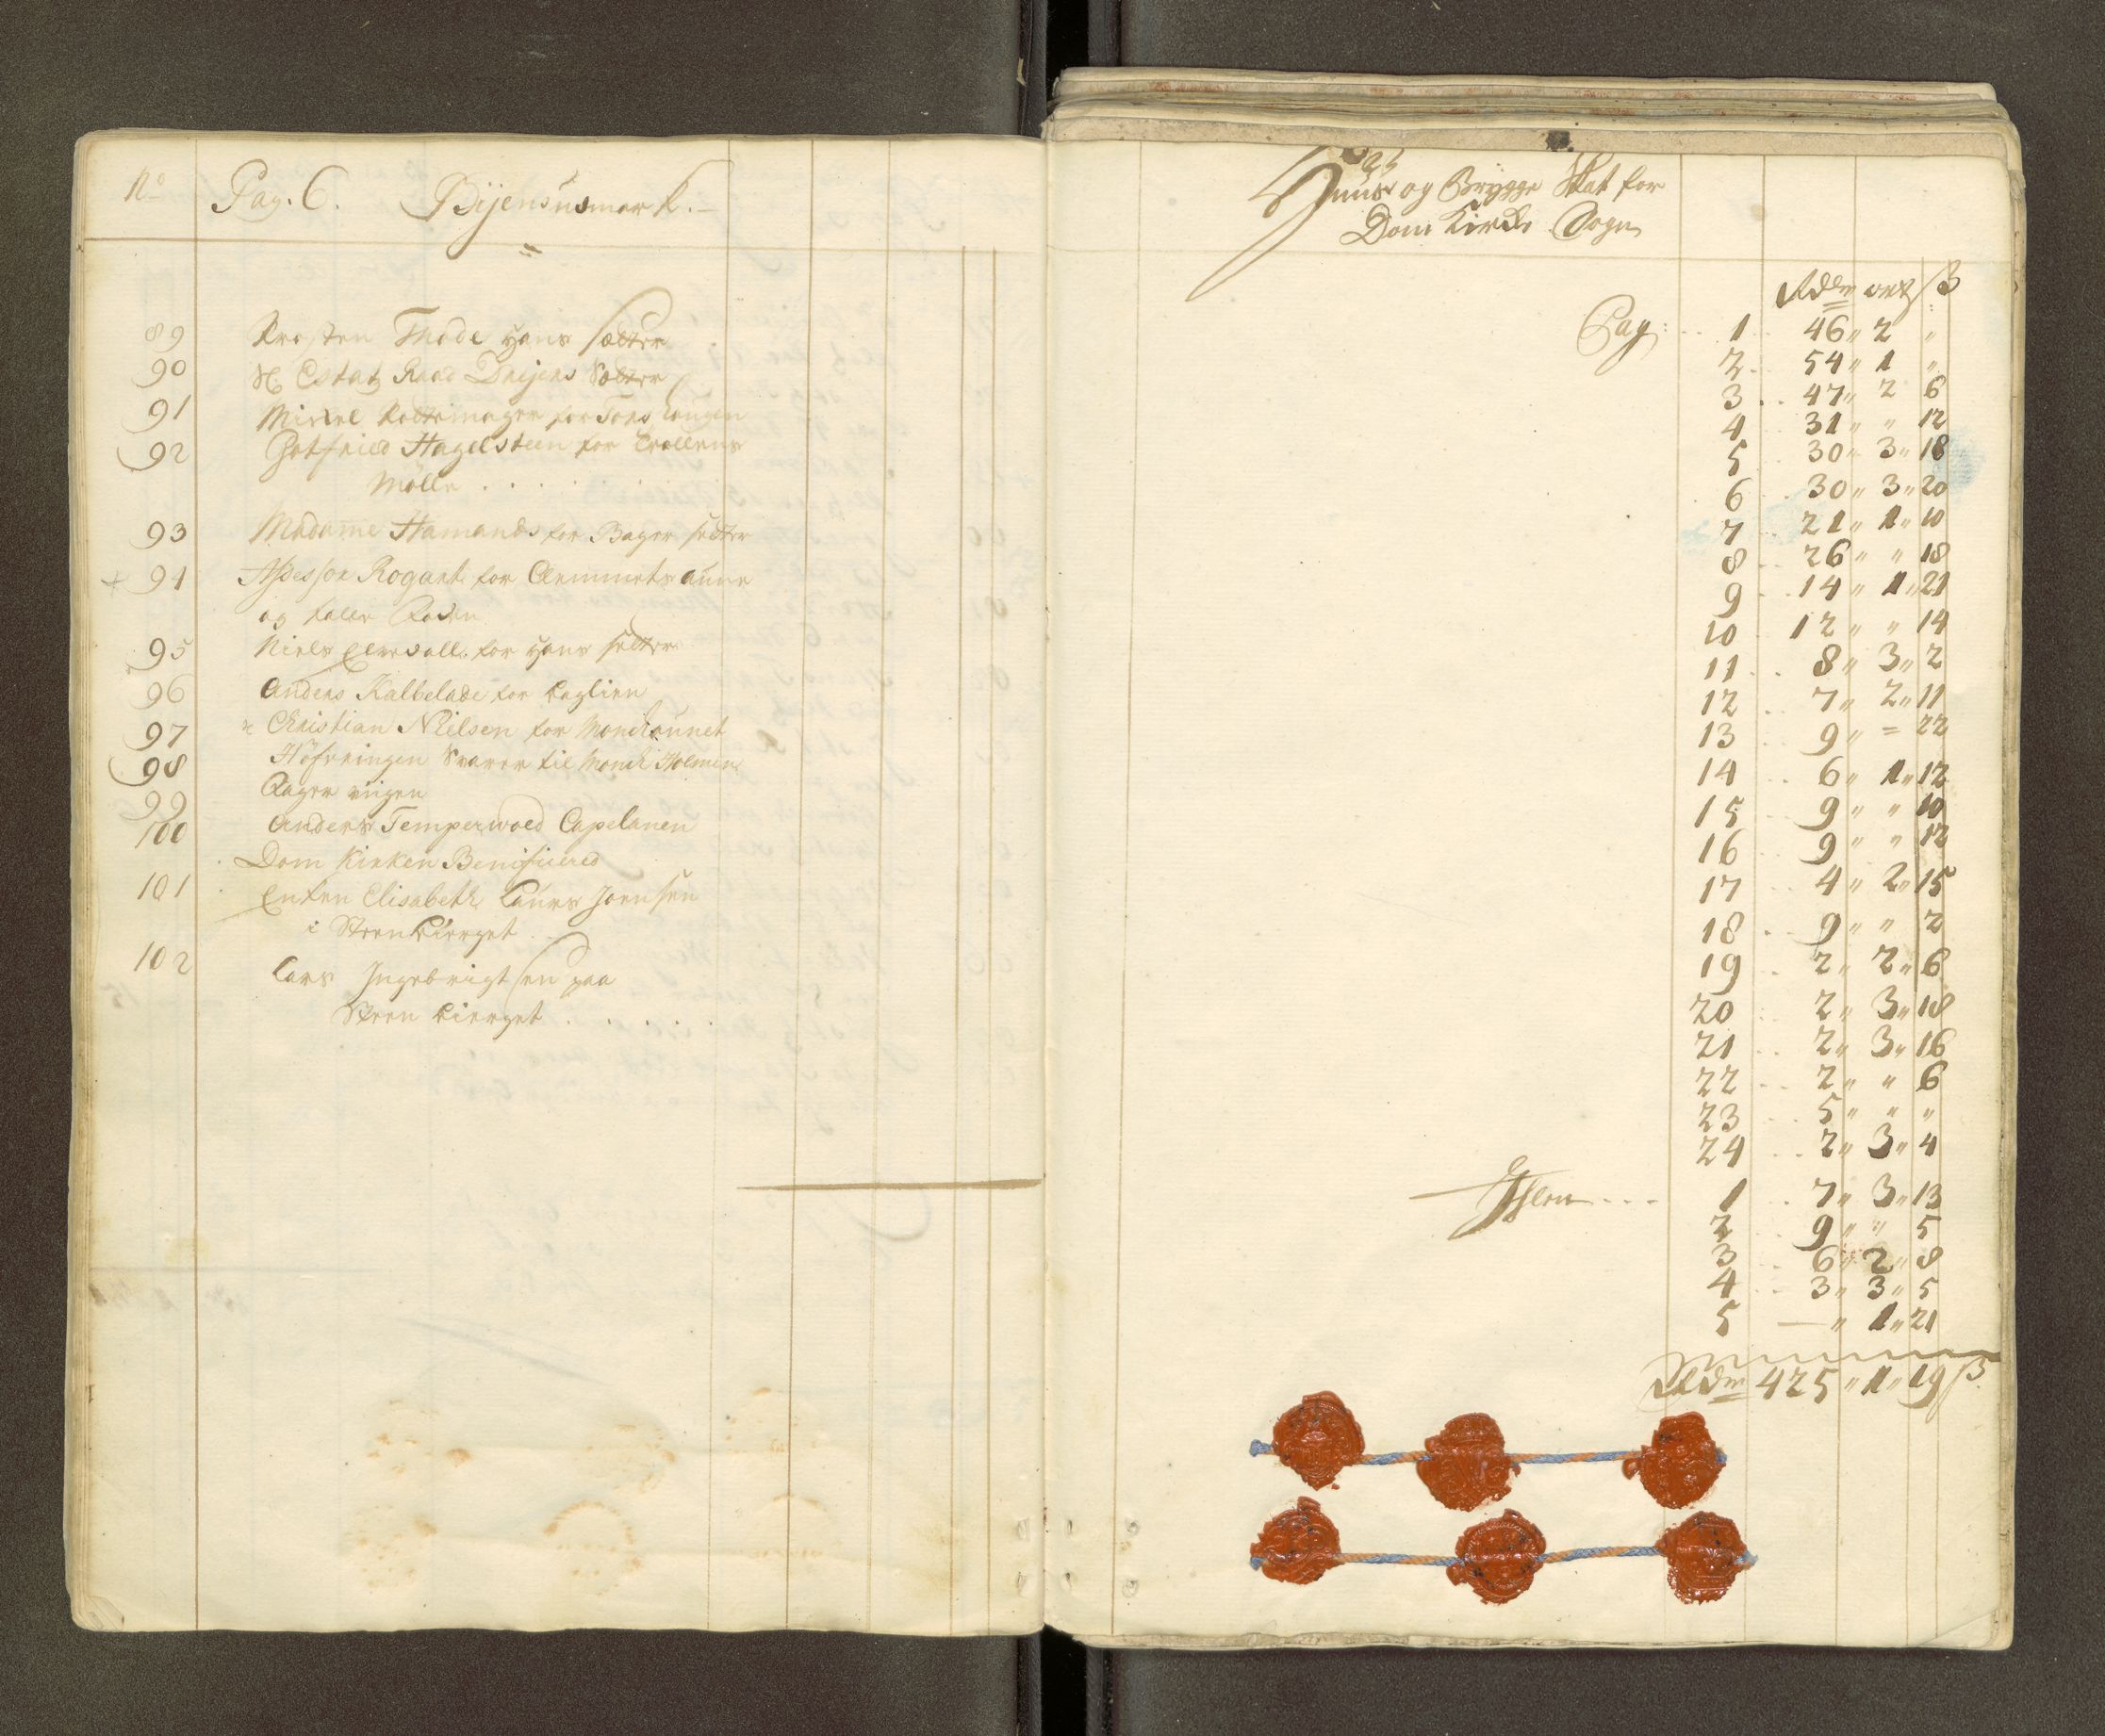 No Pag. 6. Bijens Uusmark.
89 Krosten Thode hans sætter
90 H Estatz Raad Dreijers Sætter
91 Mickel Hattemager for
92 Gotfried Hagelsteen for Trollens
Mölle . . . . . . .
93 Madame Hamands for Bager sætter
+ 94 Assessor Rogert for Clemmets aune
og
95 Niels for hans sætter
96 Anders Kalbelade for Laglien
97 Christian Nielsen for Monckaunet
98 Höfdingen Svarer til Monck Holmen
99 Rager
100 Anders Temperwold Capelanen
Dom Kirken Benificered
101 Enken Elisabeth Laurs Joensen
i Steen bierget
102 Lars Ingebrigtsen paa
Steen bierget . . . . . .
Huus og Brygge Skat for
Dom Kirke Sogn
Rdlr ort ß
Pag: 1 46 " 2 "
2 54 " 1 "
3 47 " 2 6
4 31 " " 12
5 30 " 3 " 18
6 30 " 3 " 20
7 21 " 1 " 10
8 26 " " 18
9 14 " 1 " 21
10 12 " " 14
11 8 " 3 " 2
12 7 " 2 " 11
13 9 " = 22
14 6 " 1 " 12
15 9 " " 10
16 9 " " 12
17 4 " 2 " 15
18 9 " " 2
19 2 " 2 " 6
20 2 " 3 " 18
21 2 " 3 " 16
22 2 " " 6
23 5 " " "
24 2 " 3 " 4
Ihlen . . . 1 7 " 3 " 13
2 9 " " 5
3 6 " 2 " 8
4 3 " 3 " 5
5 — " 1 " 21
Rdlr 425 " 1 " 19 ß